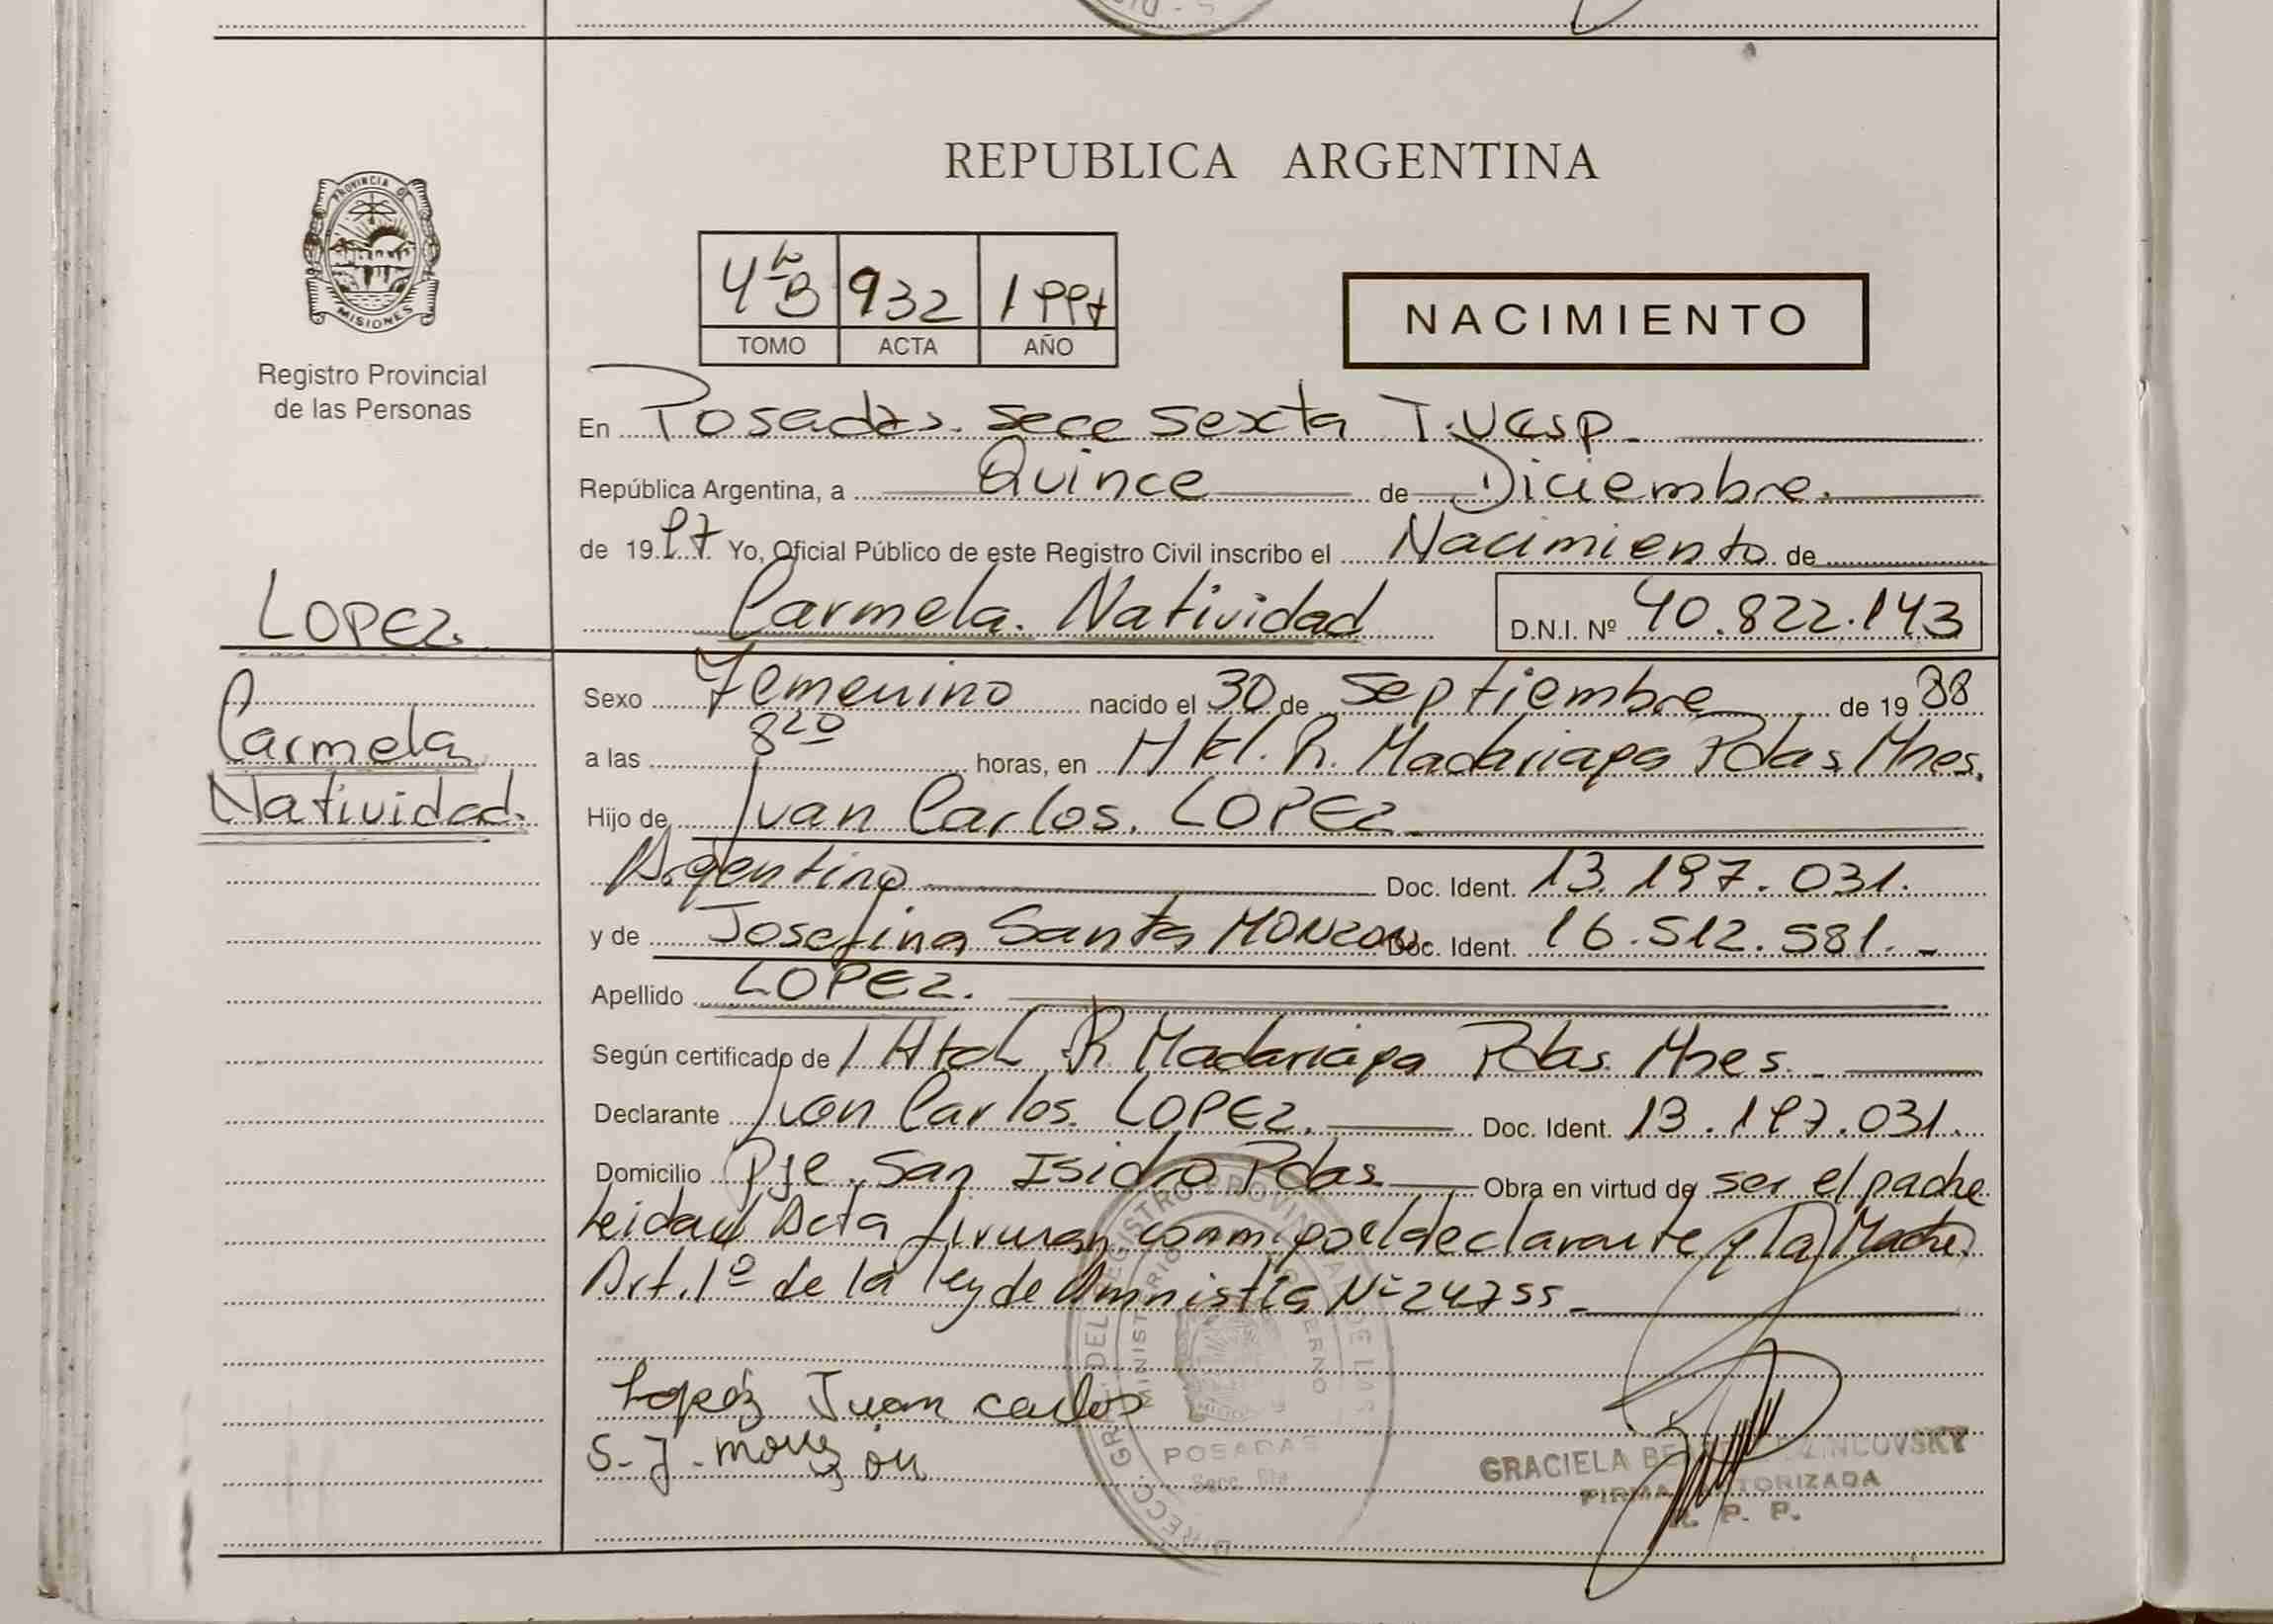 REPUBLICA ARGENTINA
PROVINCIA DE
MISIONES
Registro Provincial
de las Personas
4to B 932 1997
TOMO ACTA AÑO
NACIMIENTO
En Posadas. Secc Sexta T.
República Argentina, a Quince de Diciembre.
de 1997 Yo, Oficial Público de este Registro Civil inscribo el Nacimiento de
LOPEZ.
Carmela. Natividad D.N.I. Nº 40.822.143
Carmela
Natividad.
Sexo Femenino nacido el 30 de Septiembre de 1988
a las 8 20 horas, en Htl. R. Madariaga Pdas. Mnes.
Hijo de Juan Carlos. LOPEZ
Argentino Doc. Ident. 13.197.031.
y de Josefina Santa MONZON. Doc. Ident. 16.512.581.-
Apellido LOPEZ.
Según certificado de Htal R Madariaga Pdas. Mnes.
Declarante Juan Carlos. LOPEZ. Doc. Ident. 13.197.031.
Domicilio Pje. San Isidro Pdas Obra en virtud de ser el padre
Leida el Acta firman conmigo el declarante y la Madre.
Art. 1º de la ley de Amnistia Nº 24755-
Lopez Juan carlos
S-J-monzon
POSADAS
Secc. 6ta
GRACIELA
FIRMA AUTORIZADA
R. P. P.